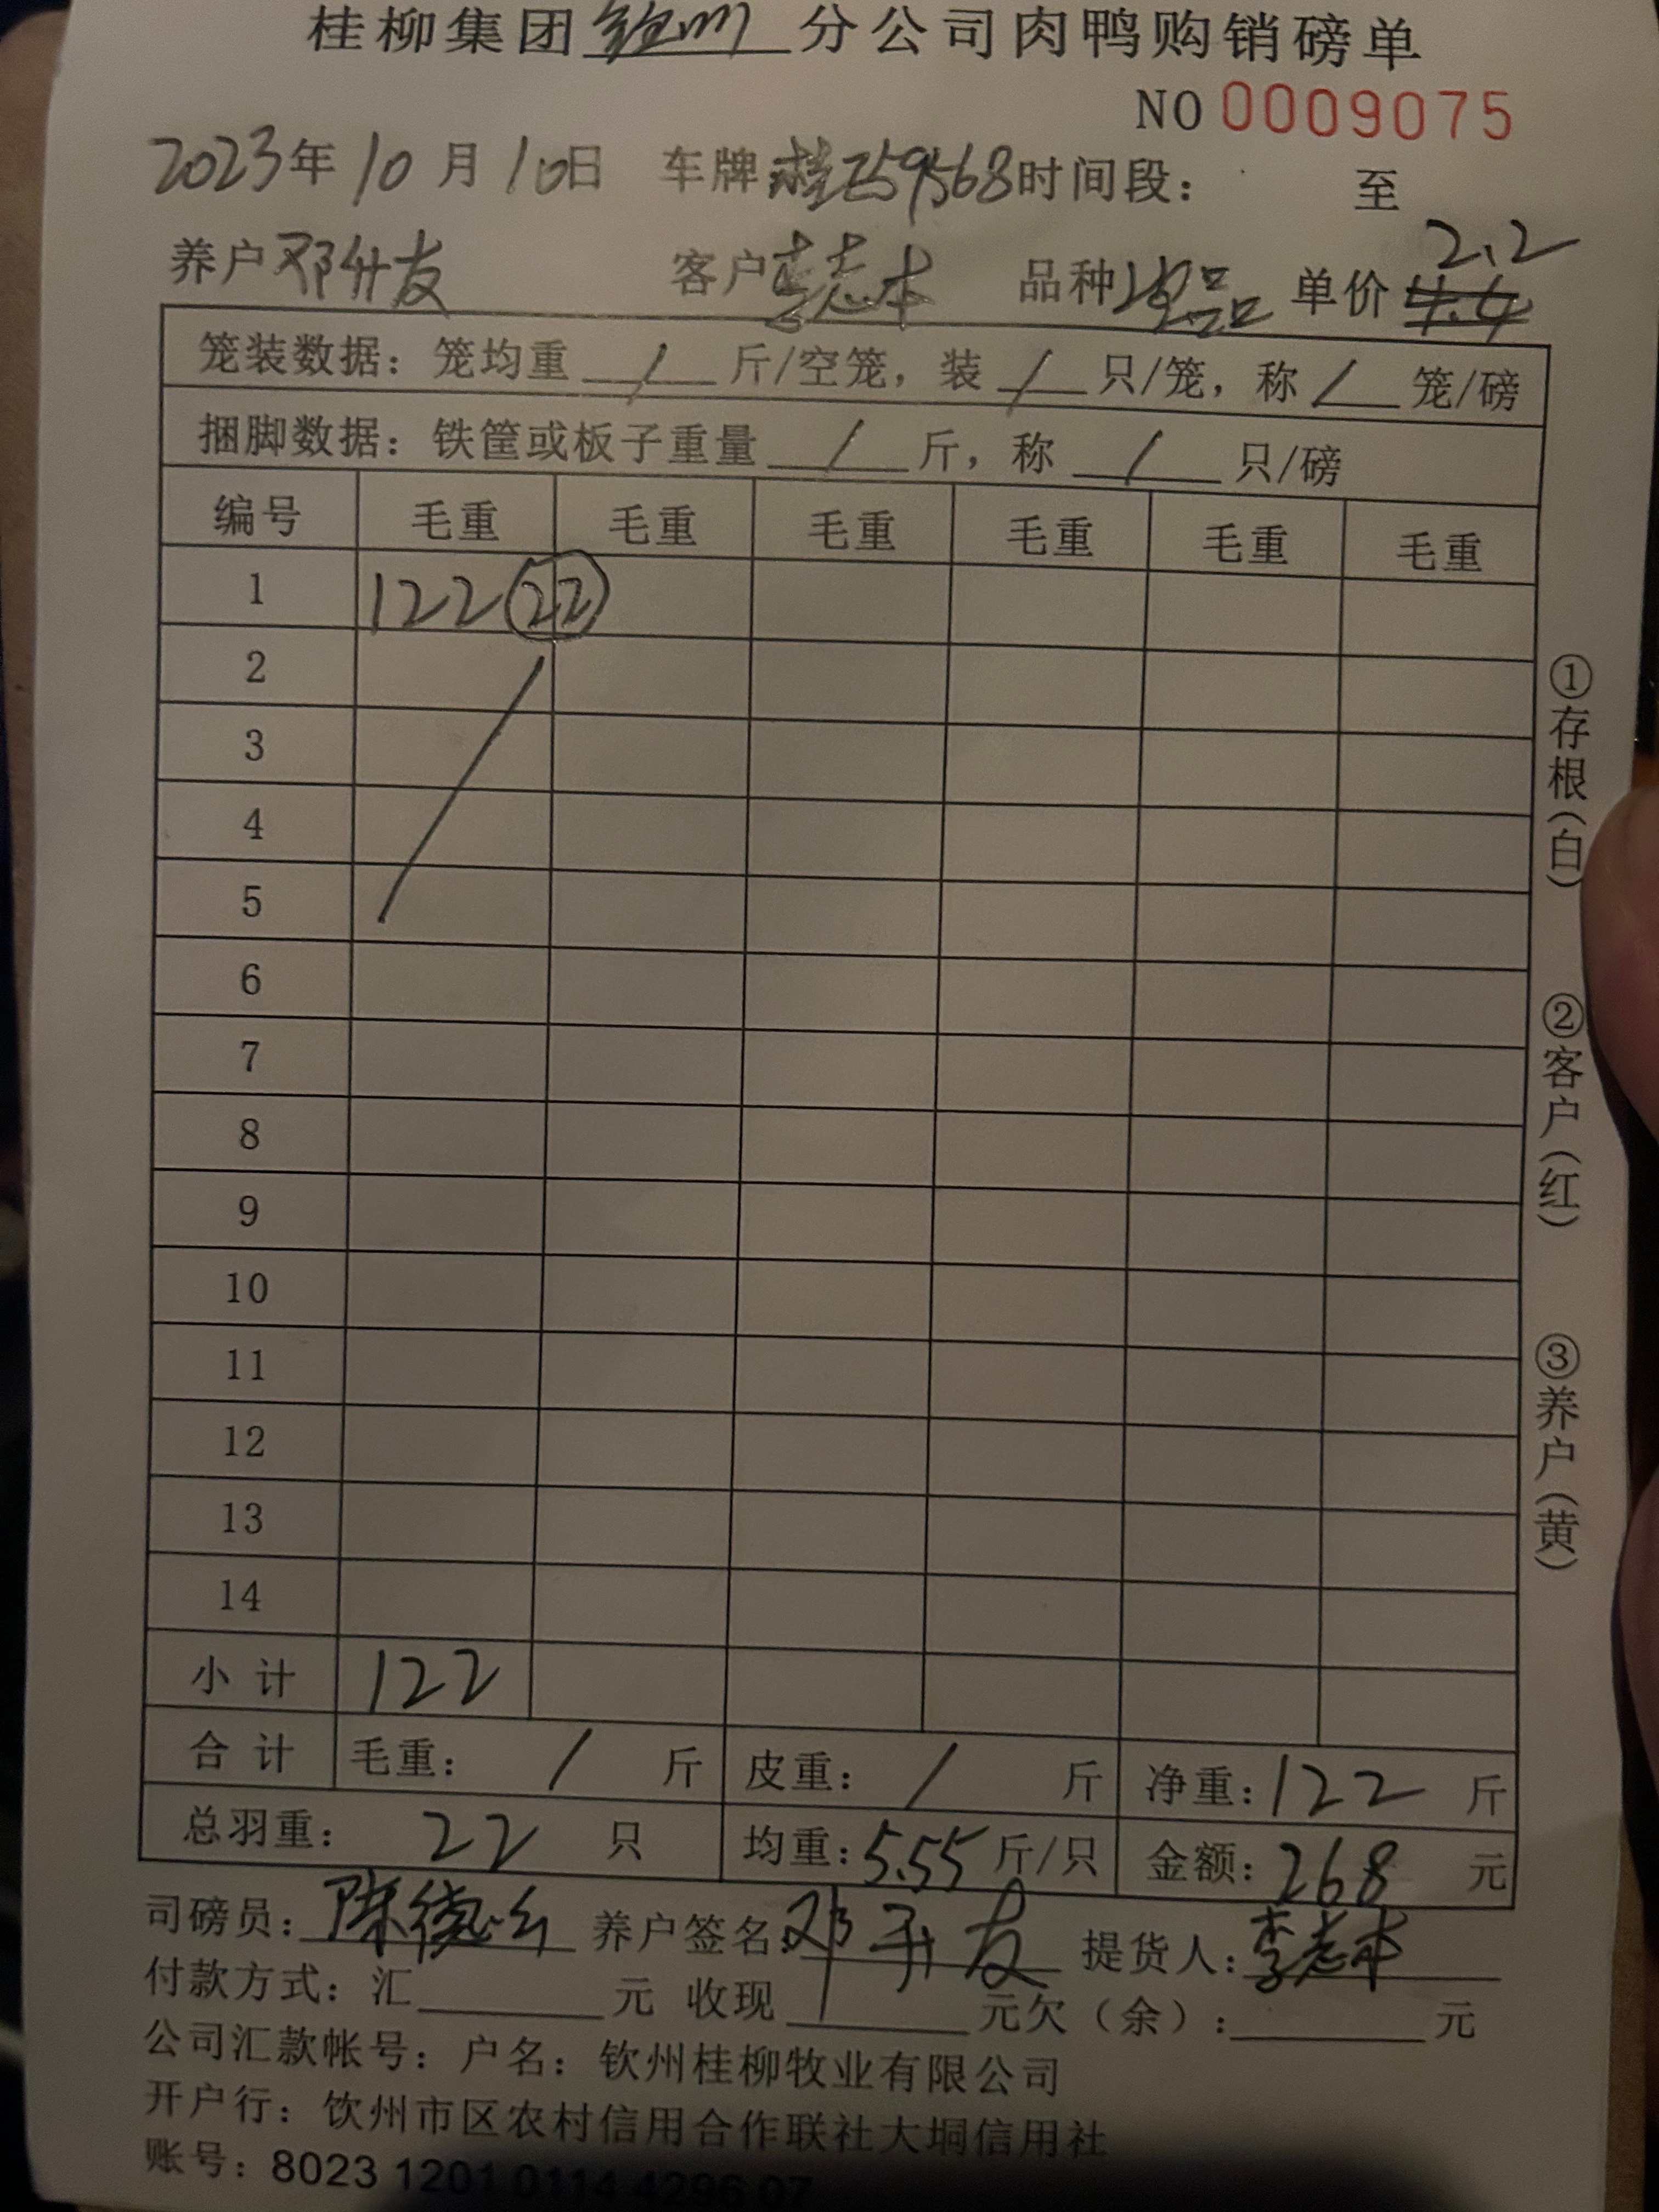 桂柳集团钦州分公司肉鸭购销磅单
NO 0009075
2023年10月10日 车牌 59568 时间段： 至
2.2
养户 邓升友 客户 李志本 品种 品 单价 4.4
笼装数据：笼均重 / 斤/空笼，装 / 只/笼，称 / 笼/磅
捆脚数据：铁筐或板子重量 / 斤，称 / 只/磅
编号 毛重 毛重 毛重 毛重 毛重 毛重
1 122 22
2
3
4
5
6
7
8
9
10
11
12
13
14
小计 122
合计 毛重： / 斤 皮重： / 斤 净重：122 斤
总羽重： 22 只 均重：5.55 斤/只 金额：268 元
司磅员：陈德 养户签名：邓升友 提货人：李志本
付款方式：汇 元 收现 元欠（余）： 元
公司汇款帐号：户名：钦州桂柳牧业有限公司
开户行：饮州市区农村信用合作联社大垌信用社
账号：8023 1201 0114 4296 07
①存根（白）
②客户（红）
③养户（黄）